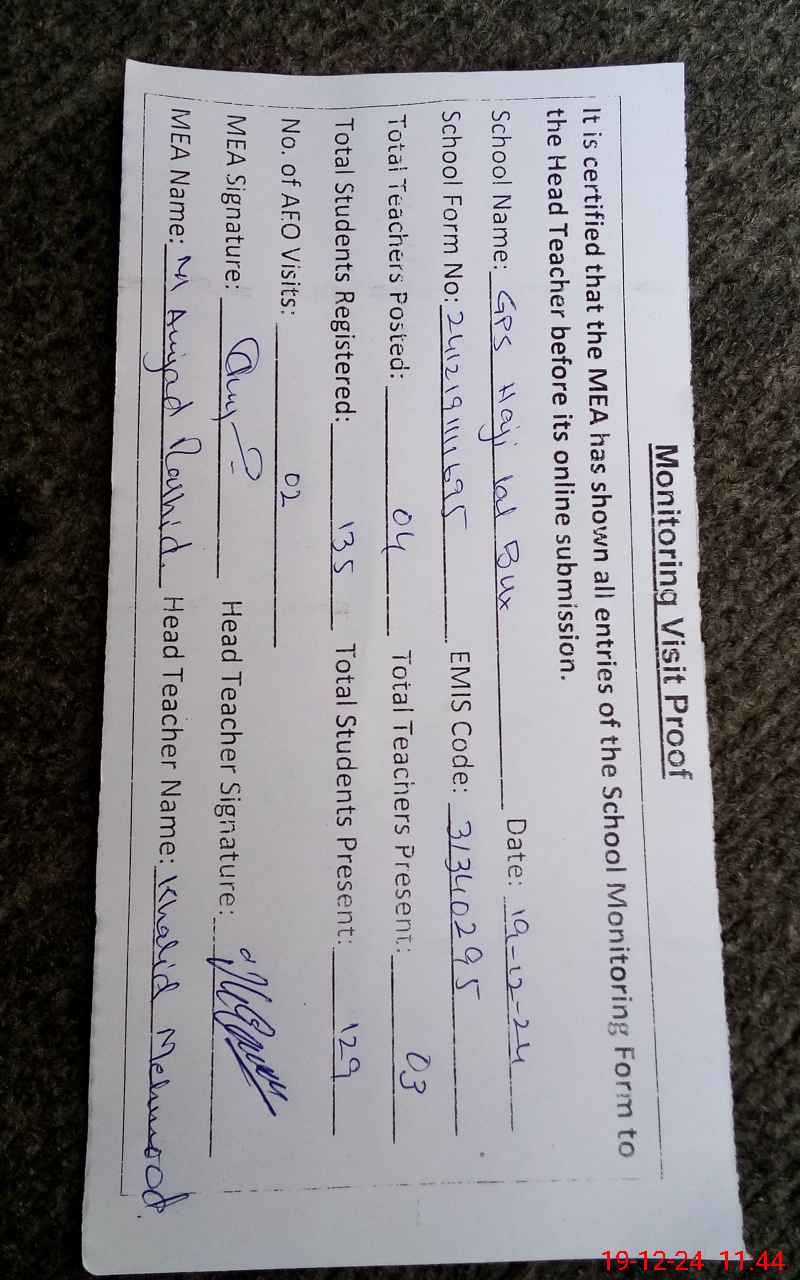 Monitoring Visit Proof
It is certified that the MEA has shown all entries of the School Monitoring Form to
the Head Teacher before its online submission.
School Name: GPS Haji Bux Date: 19-12-24
School Form No: EMIS Code: 31340295
Total Teachers Posted: 04 Total Teachers Present: 03
Total Students Registered: 135 Total Students Present: 129
No. of AEO Visits: 02
MEA Signature: Head Teacher Signature:
MEA Name: M Amjad Rashid. Head Teacher Name: Khalid Mehmood.
19-12-24 11:44